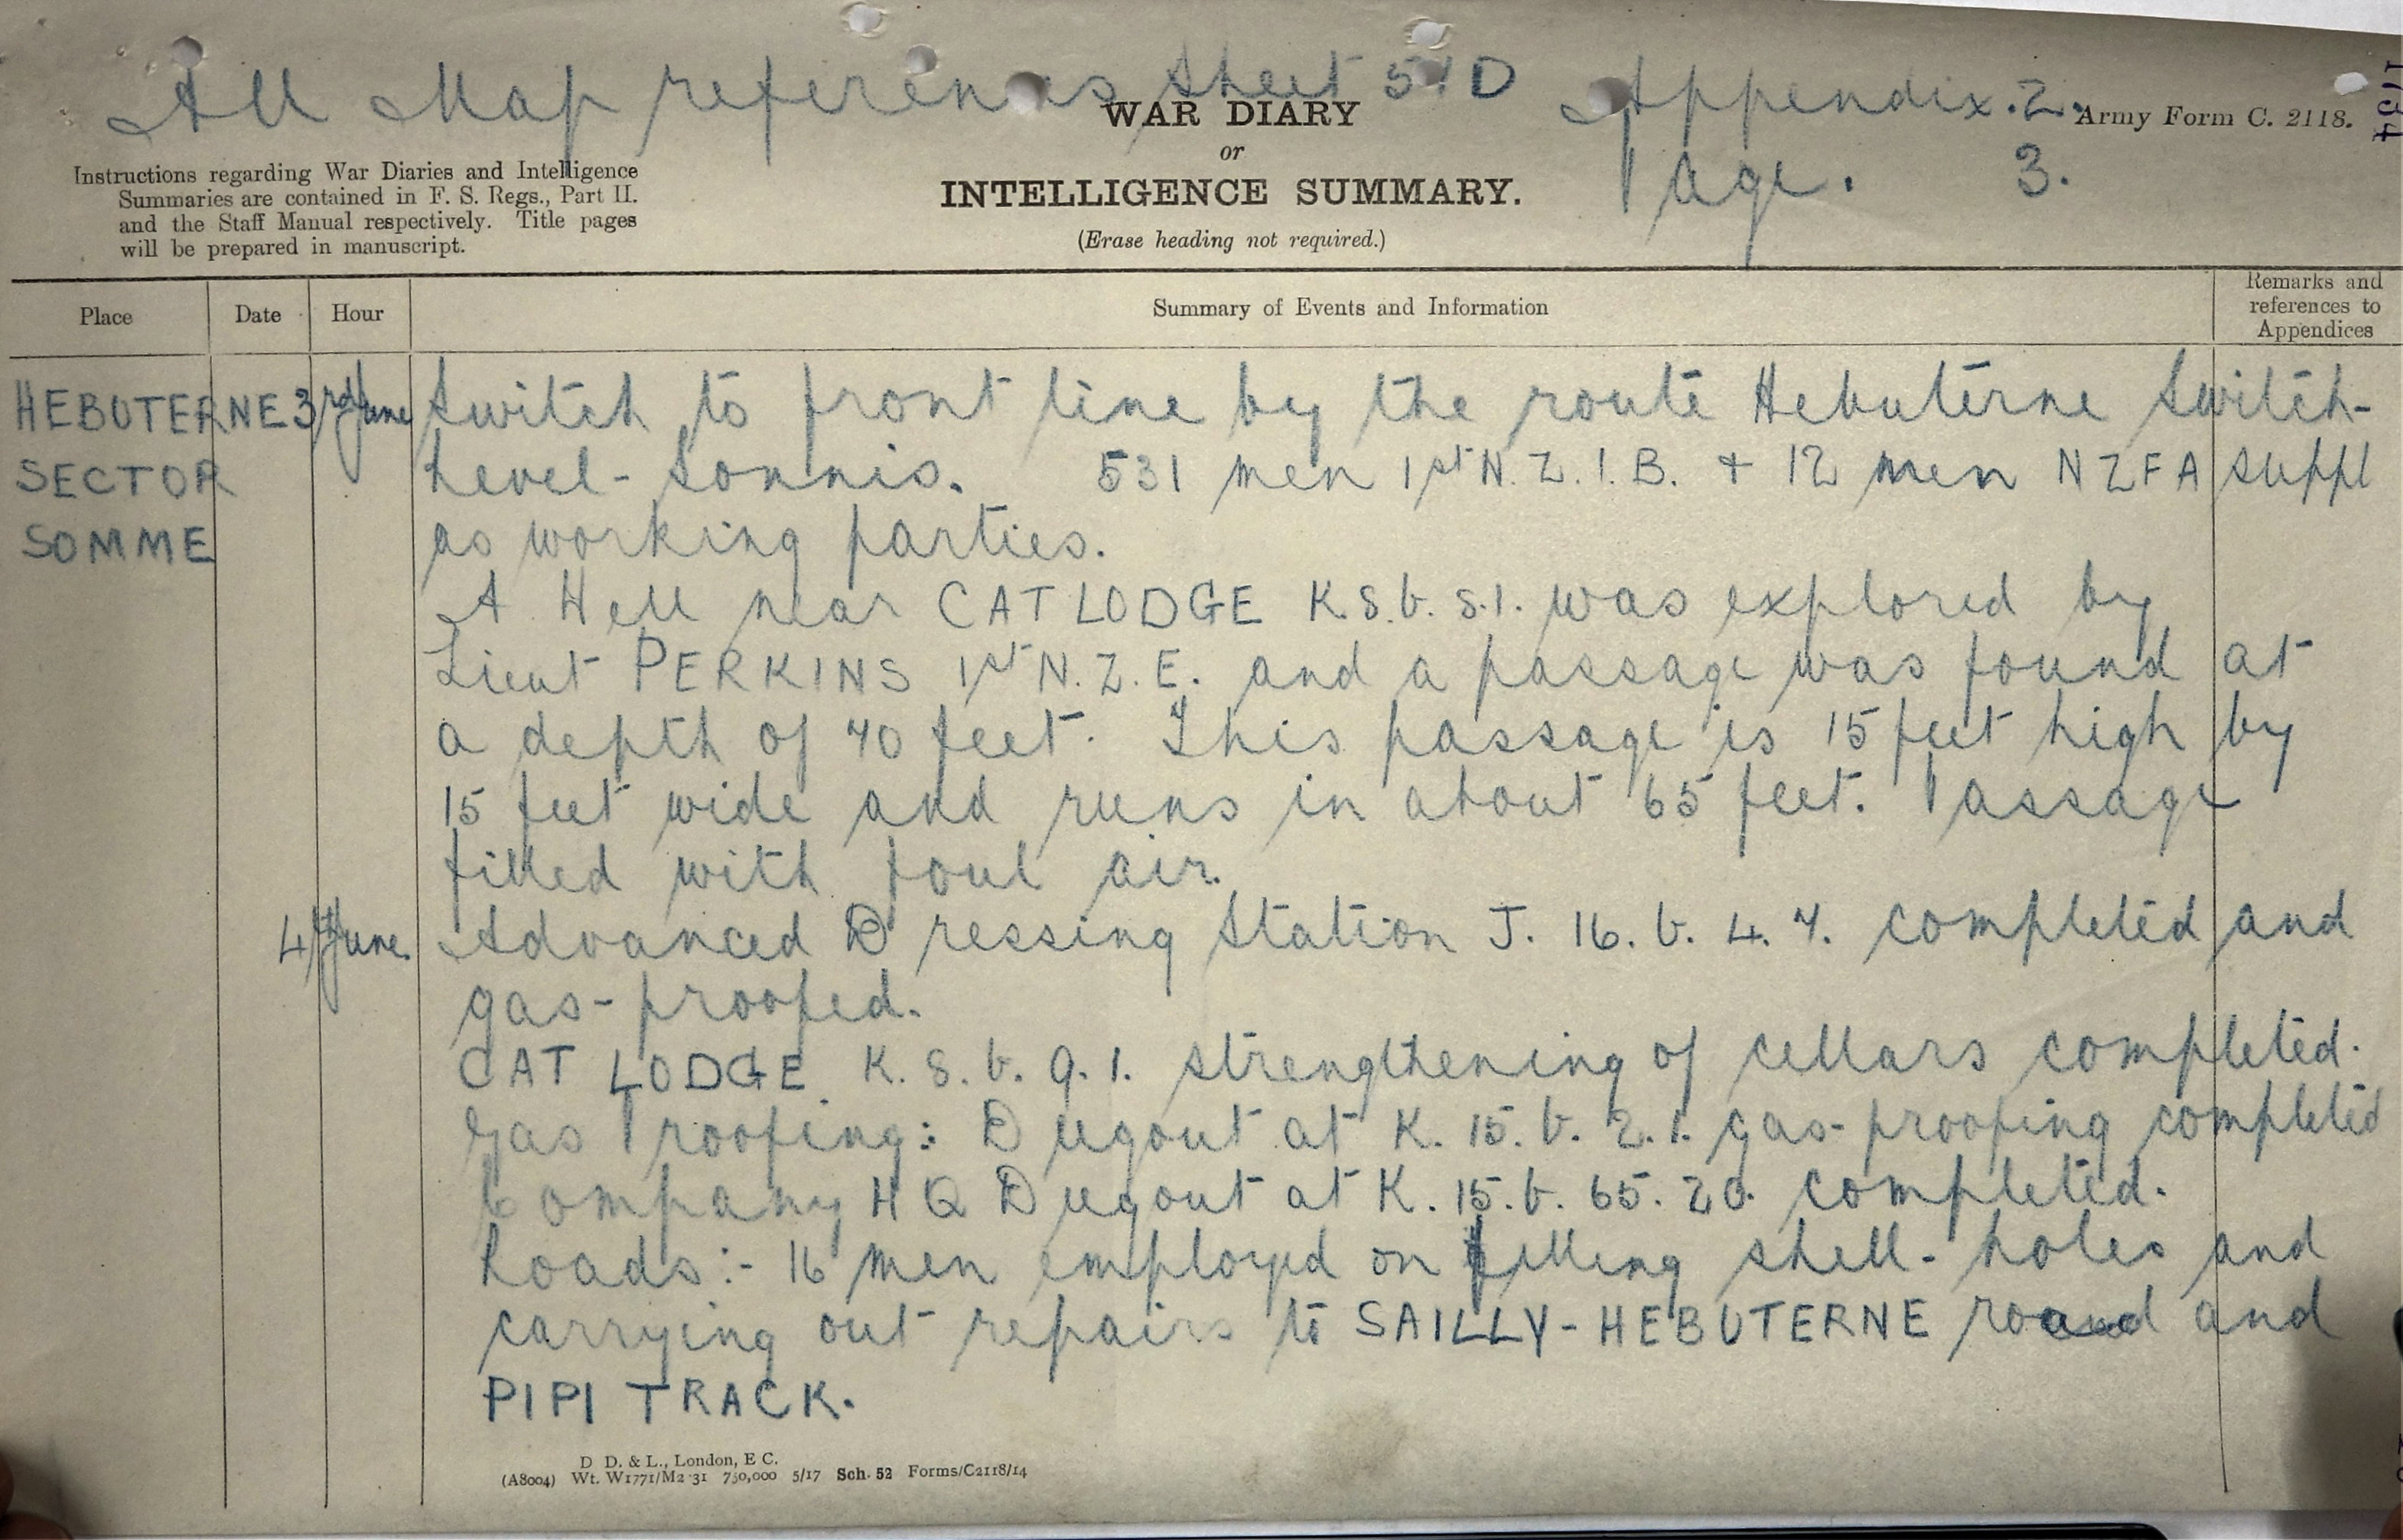 All Map references Sheet 57D Appendix. 2.
Page. 3.
1734
WAR DIARY
or
INTELLIGENCE SUMMARY.
(Erase heading not required.)
Army Form C. 2118.
Instructions regarding War Diaries and Intelligence
Summaries are contained in F. S. Regs., Part II.
and the Staff Manual respectively. Title pages
will be prepared in manuscript.
Place Date Hour Summary of Events and Information Remarks and
references to
Appendices
HEBUTERNE 3rd June Switch to front line by the route Hebuterne Switch-
SECTOR Revel - Sonnis. 531 men 1st N.Z.I.B. + 12 men NZFA suppl
SOMME as working parties.
A Well near CAT LODGE K.8.b.8.1. was explored by
Lieut PERKINS 1st N.Z.E. and a passage was found at
a depth of 70 feet. This passage is 15 feet high by
15 feet wide and runs in about 65 feet. Passage
filled with foul air.
4th June. Advanced Dressing Station J. 16. b. 4. 7. completed and
gas-proofed.
CAT LODGE K. 8. b. 9. 1. strengthening of cellars completed.
Gas Proofing: Dugout at K. 15. b. 2. 1. gas-proofing completed
Company HQ Dugout at K. 15. b. 65. 20. completed.
Roads:- 16 men employed on filling shell-holes and
carrying out repairs to SAILLY-HEBUTERNE road and
PIPI TRACK.
D D. & L., London, E C.
(A8004) Wt. W1771/M2 31 750,000 5/17 Sch. 52 Forms/C2118/14